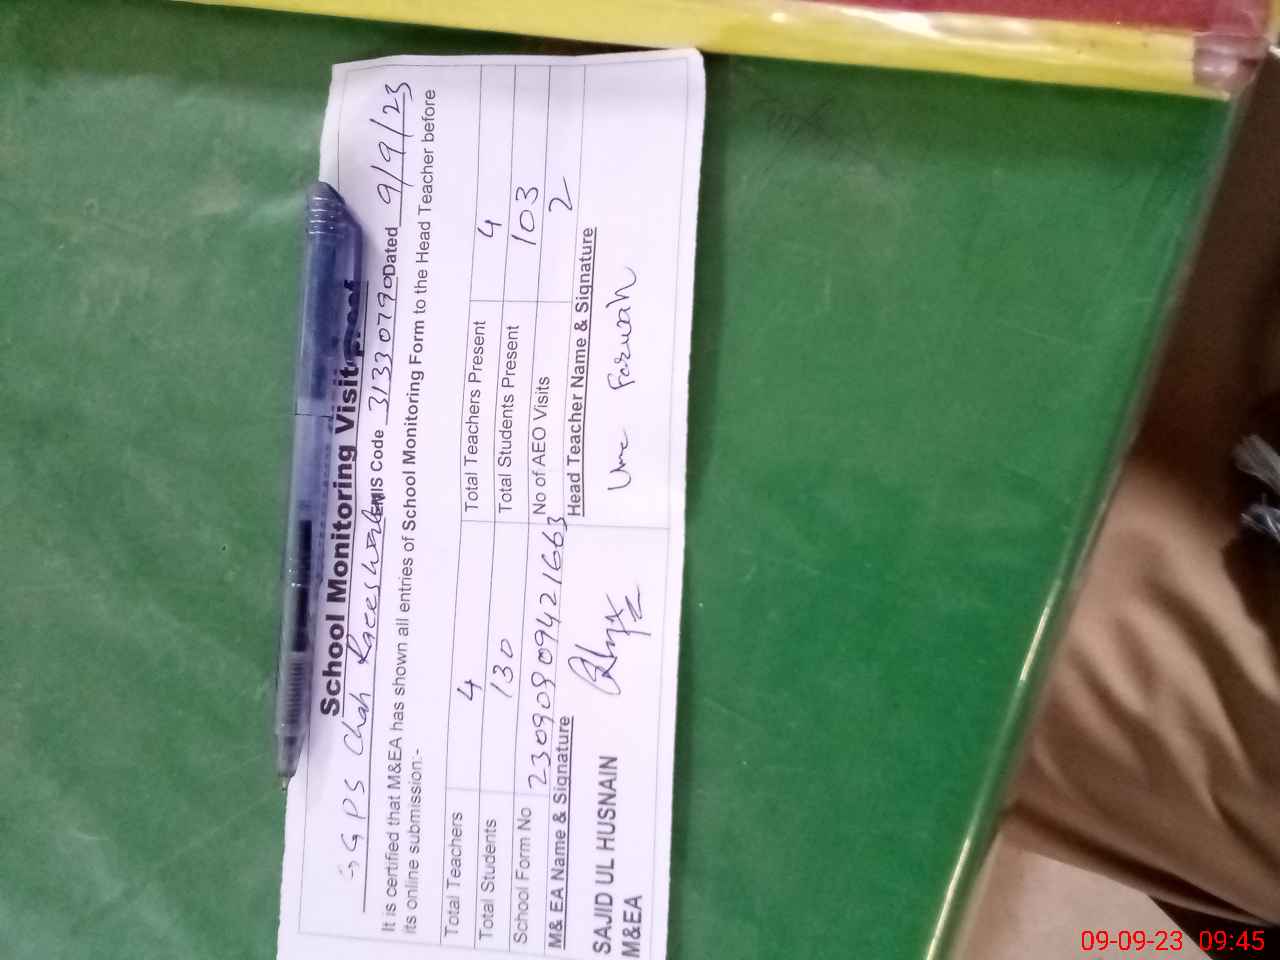 School Monitoring Visit proof
GPS Chah Raeeswala EMIS Code 31330790 Dated 9/9/23
It is certified that M&EA has shown all entries of School Monitoring Form to the Head Teacher before
its online submission:-
Total Teachers 4 Total Teachers Present 4
Total Students 130 Total Students Present 103
School Form No 23090909421663 No of AEO Visits 2
M& EA Name & Signature Head Teacher Name & Signature
SAJID UL HUSNAIN
M&EA
Ume Farwah
09-09-23 09:45